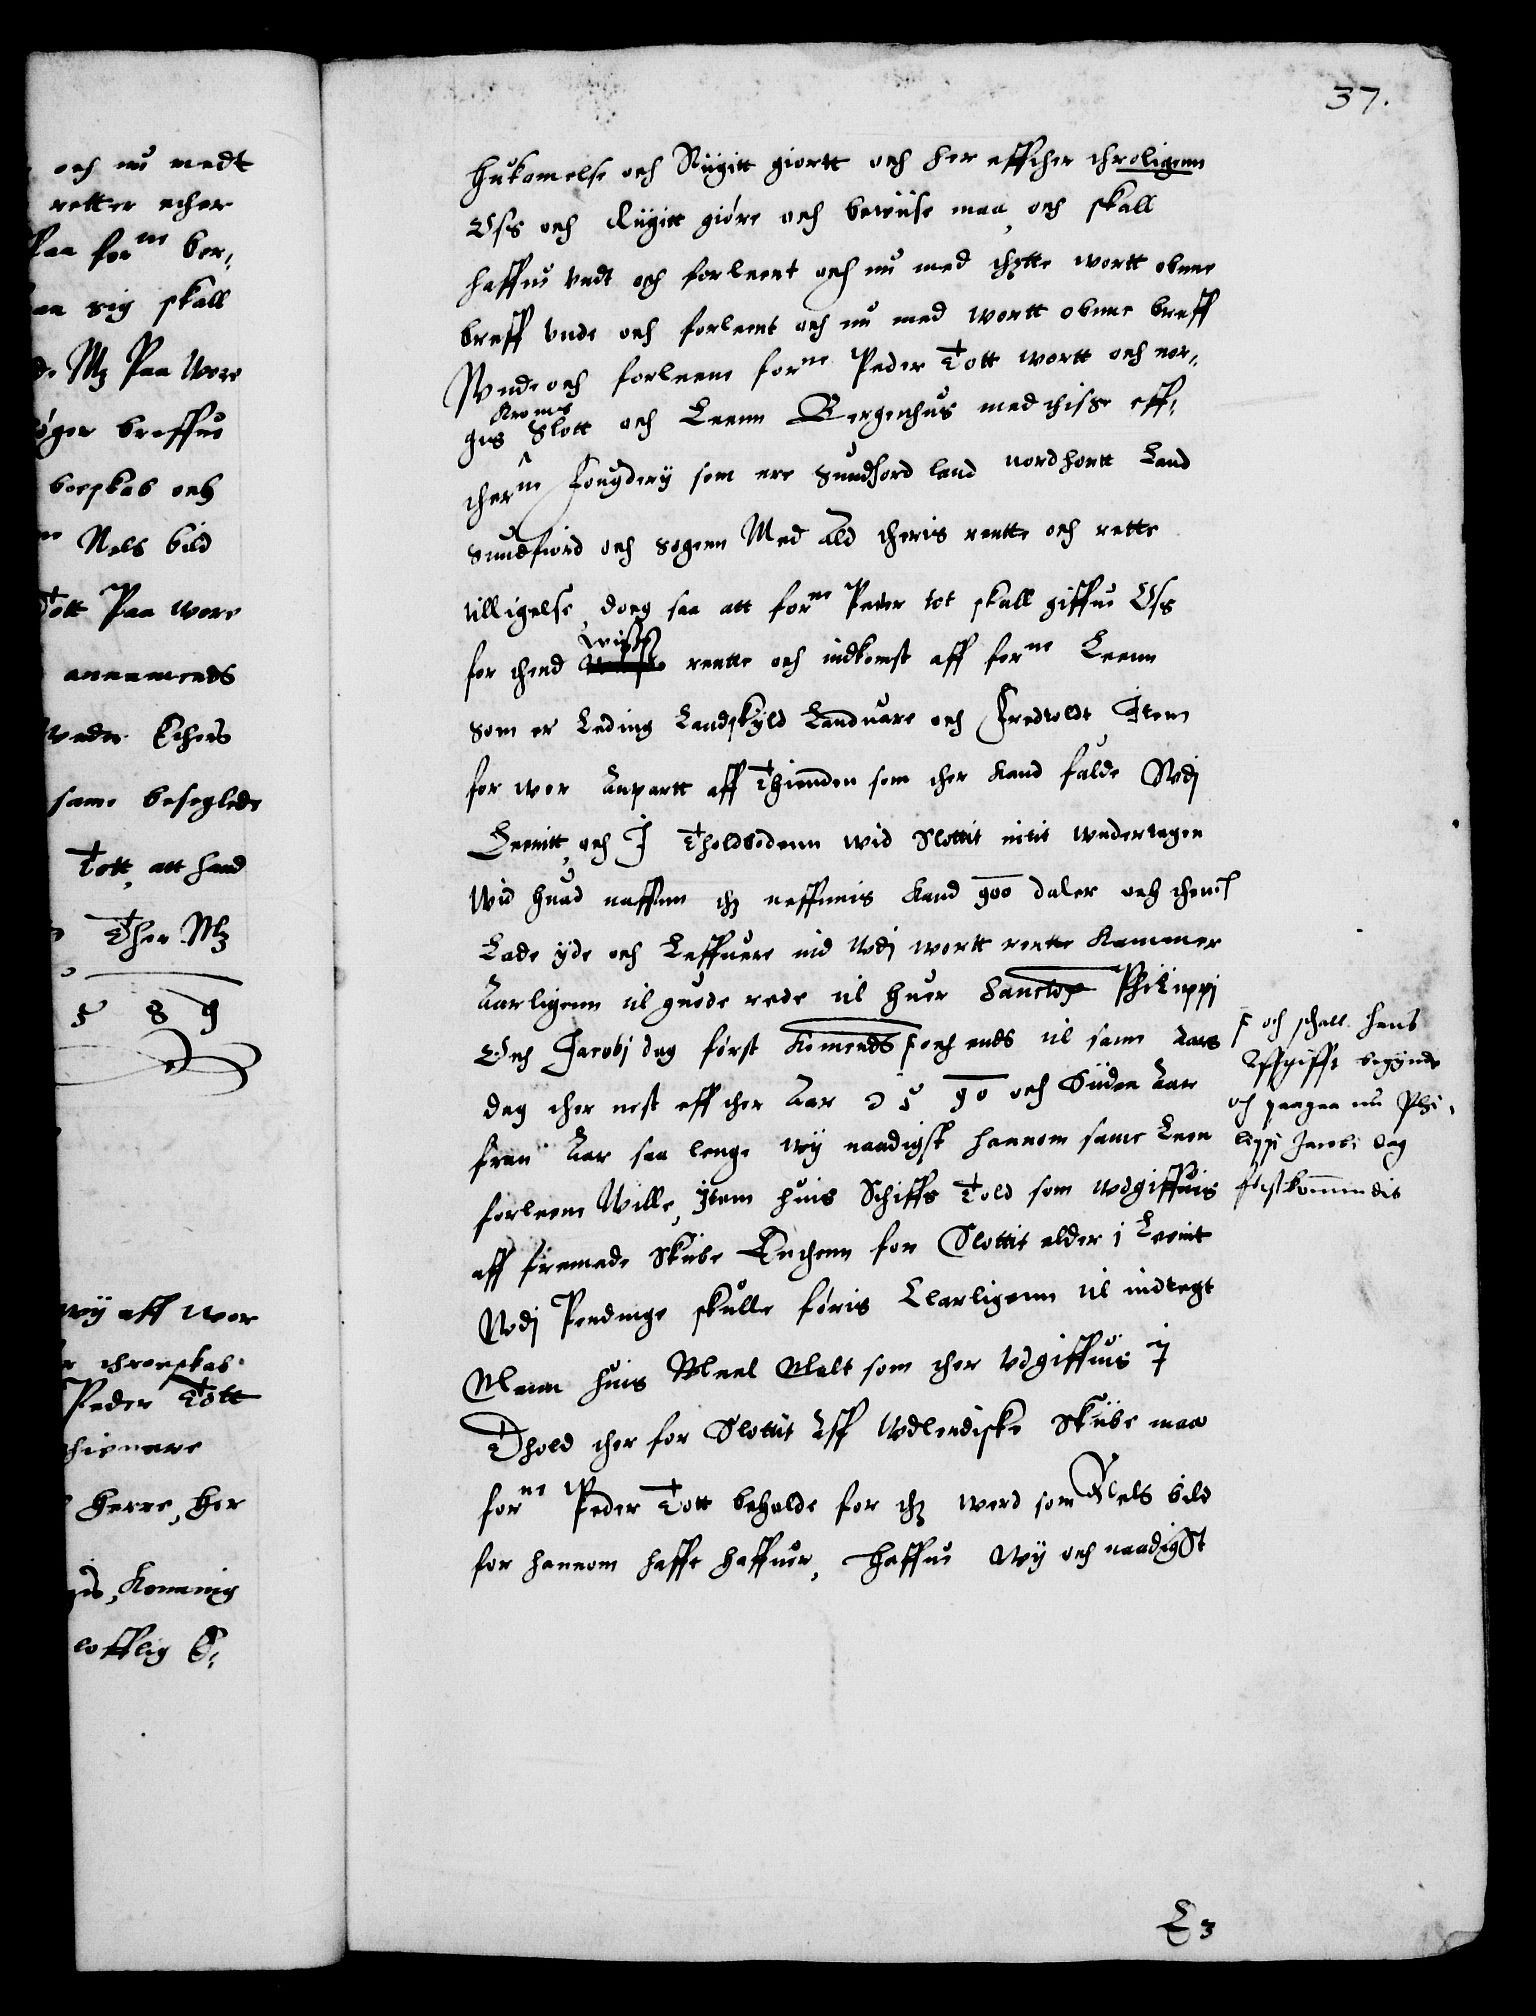 och nu medt
retter echer
paa forne ber,
paa sig skall
Mz Paa Wore
øger breffue
boepskab och
Nels bild
Tott Paa wore
anammends
vnder Echers
same beseglede
Tott, att hand
Ther Mz
5 8 9
wÿ aff wor
chroeskab
Peder Tott
chienere
Herre, Her
gis, Konning
lofflig
37.
Hukomelse och Riigitt giortt och her effcher chroligenn
Oss och Riigitt giöre och bewiise maa, och skall
haffue vndt och forleent och nu med chette wortt obnne
breff vnde och forlent och nu med wortt obnne breff
Wnde och forleene forne Peder Tott wortt och nor,
Kronns
gis Slott och Leenn Bergenhus med chisse eff,
cherne Fougderij som ere Sundhord land nordhortt Land
Sundfiord och Sogenn Med Ald cheris rentte och rette
tilligelse, dog saa att forne Peder tot skall giffue Oss
wisse
for chend rentte och indkomst aff forne Leenn
Som er Leding Landskÿld Landuare och Fredtoldt, Item
for wor Anpartt aff Thienden som cher kand falde Wdj
Leenitt, och J Tholdbodenn wid Slottit intit wndertagen
Wid huad naffnn chz neffnnis kand 900 daler och chenn
Lade ÿde och Leffuere ind Wdj wortt rentte kammer
Aarligenn til guode rede til huer Sanctor Philippi
Och Jacobj dag først komends F och ends til samme Aars
dag cher nest effcher Aar 1590 och Siiden Aar
fran Aar saa lenge wÿ naadigst hannom same Leen
forleene Wille, Item huis Schiffs Told som wdgiffuis
aff fremede Skibe Enchenn for Slottit elder i Leenit
Wdj Pendinge skulle føris Clarligenn til indtegt
Menn huis Meel Malt som cher vdgiffuis J
Thold cher for Slottit Aff Wdlendiske Skübe maa
forne Peder Tott beholde for chz werd som Nels bild
for hannom hafft haffuer, Haffue Wÿ och naadigst
F och schall hans
Affgifft begynde
och paagaa nu Phi,
lippi Jacobi dag
førstkommendis
E 3